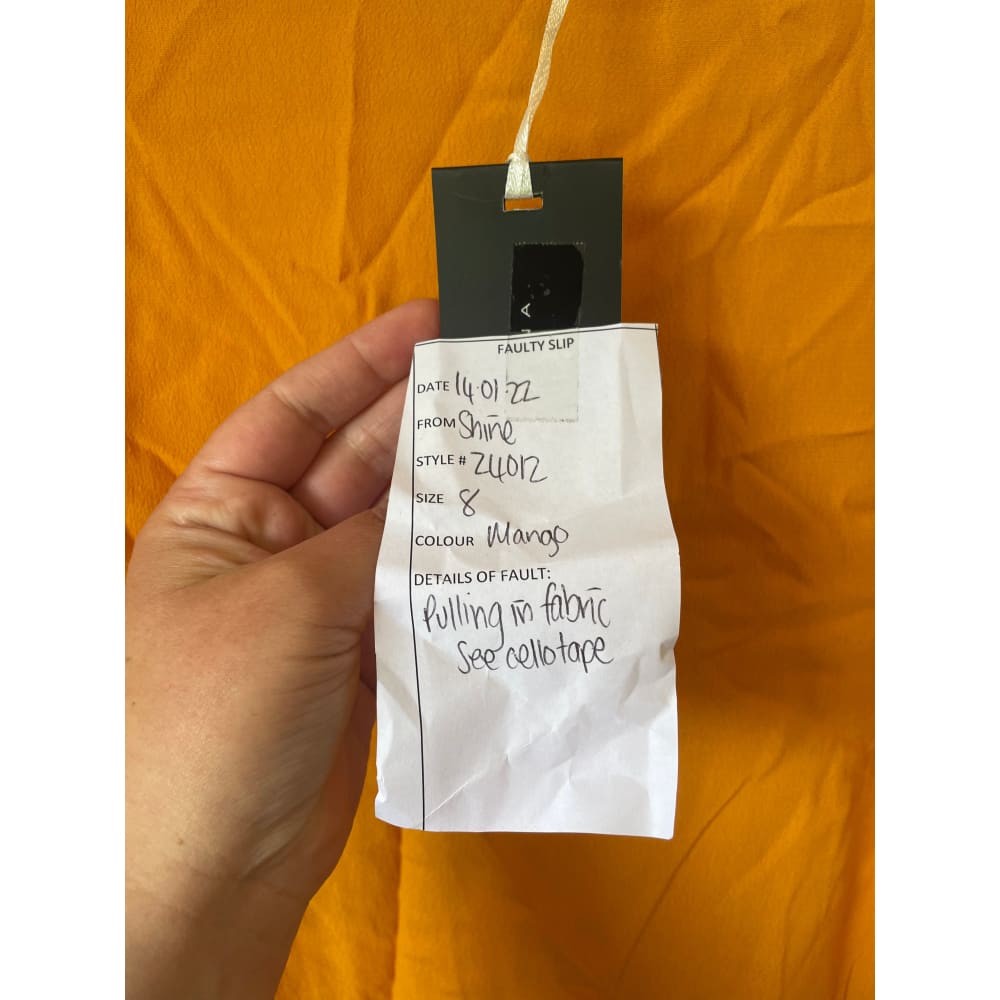 FAULTY SLIP
DATE 14.01.22
FROM Shine
STYLE # 24012
SIZE 8
COLOUR Mango
DETAILS OF FAULT:
Pulling in fabric
See cellotape